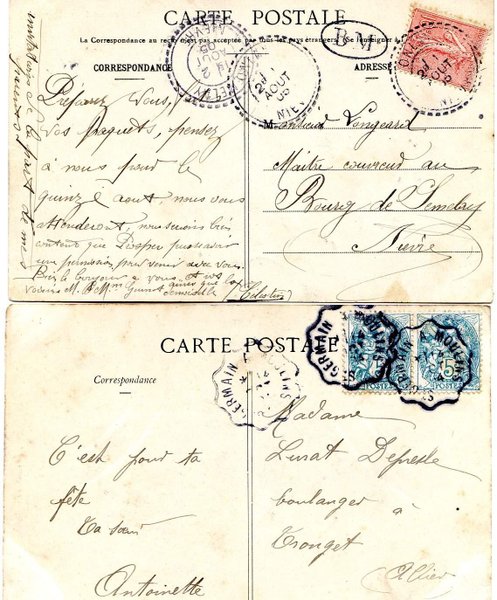 CARTE POSTALE
La Correspondance au recto n'est pas acceptée par tous les pays étrangers. (Se renseigner à la Poste)
B M
CORRESPONDANCE
ADRESSE
12 AOUT
NIÈV
Préparez vous,
vos paquets, pensez
à nous pour le
quinze aout, nous vous
attenderont, nous serions bien
content que Prosper puisse avoir
une permission pour venir avec vous.
Bien le bonjour a vous et vos
voisins M. & Mme
Célestine
Monsieur Vongeard
Maitre couvreur au
Bourg de Semelay
Nièvre
CARTE POSTALE
Correspondance
GERMAIN
MOULINS
POSTES
5
C'est pour ta
fête
Ta sœur
Antoinette
Madame
Lurat Depresle
boulanger à
Tronget
Allier